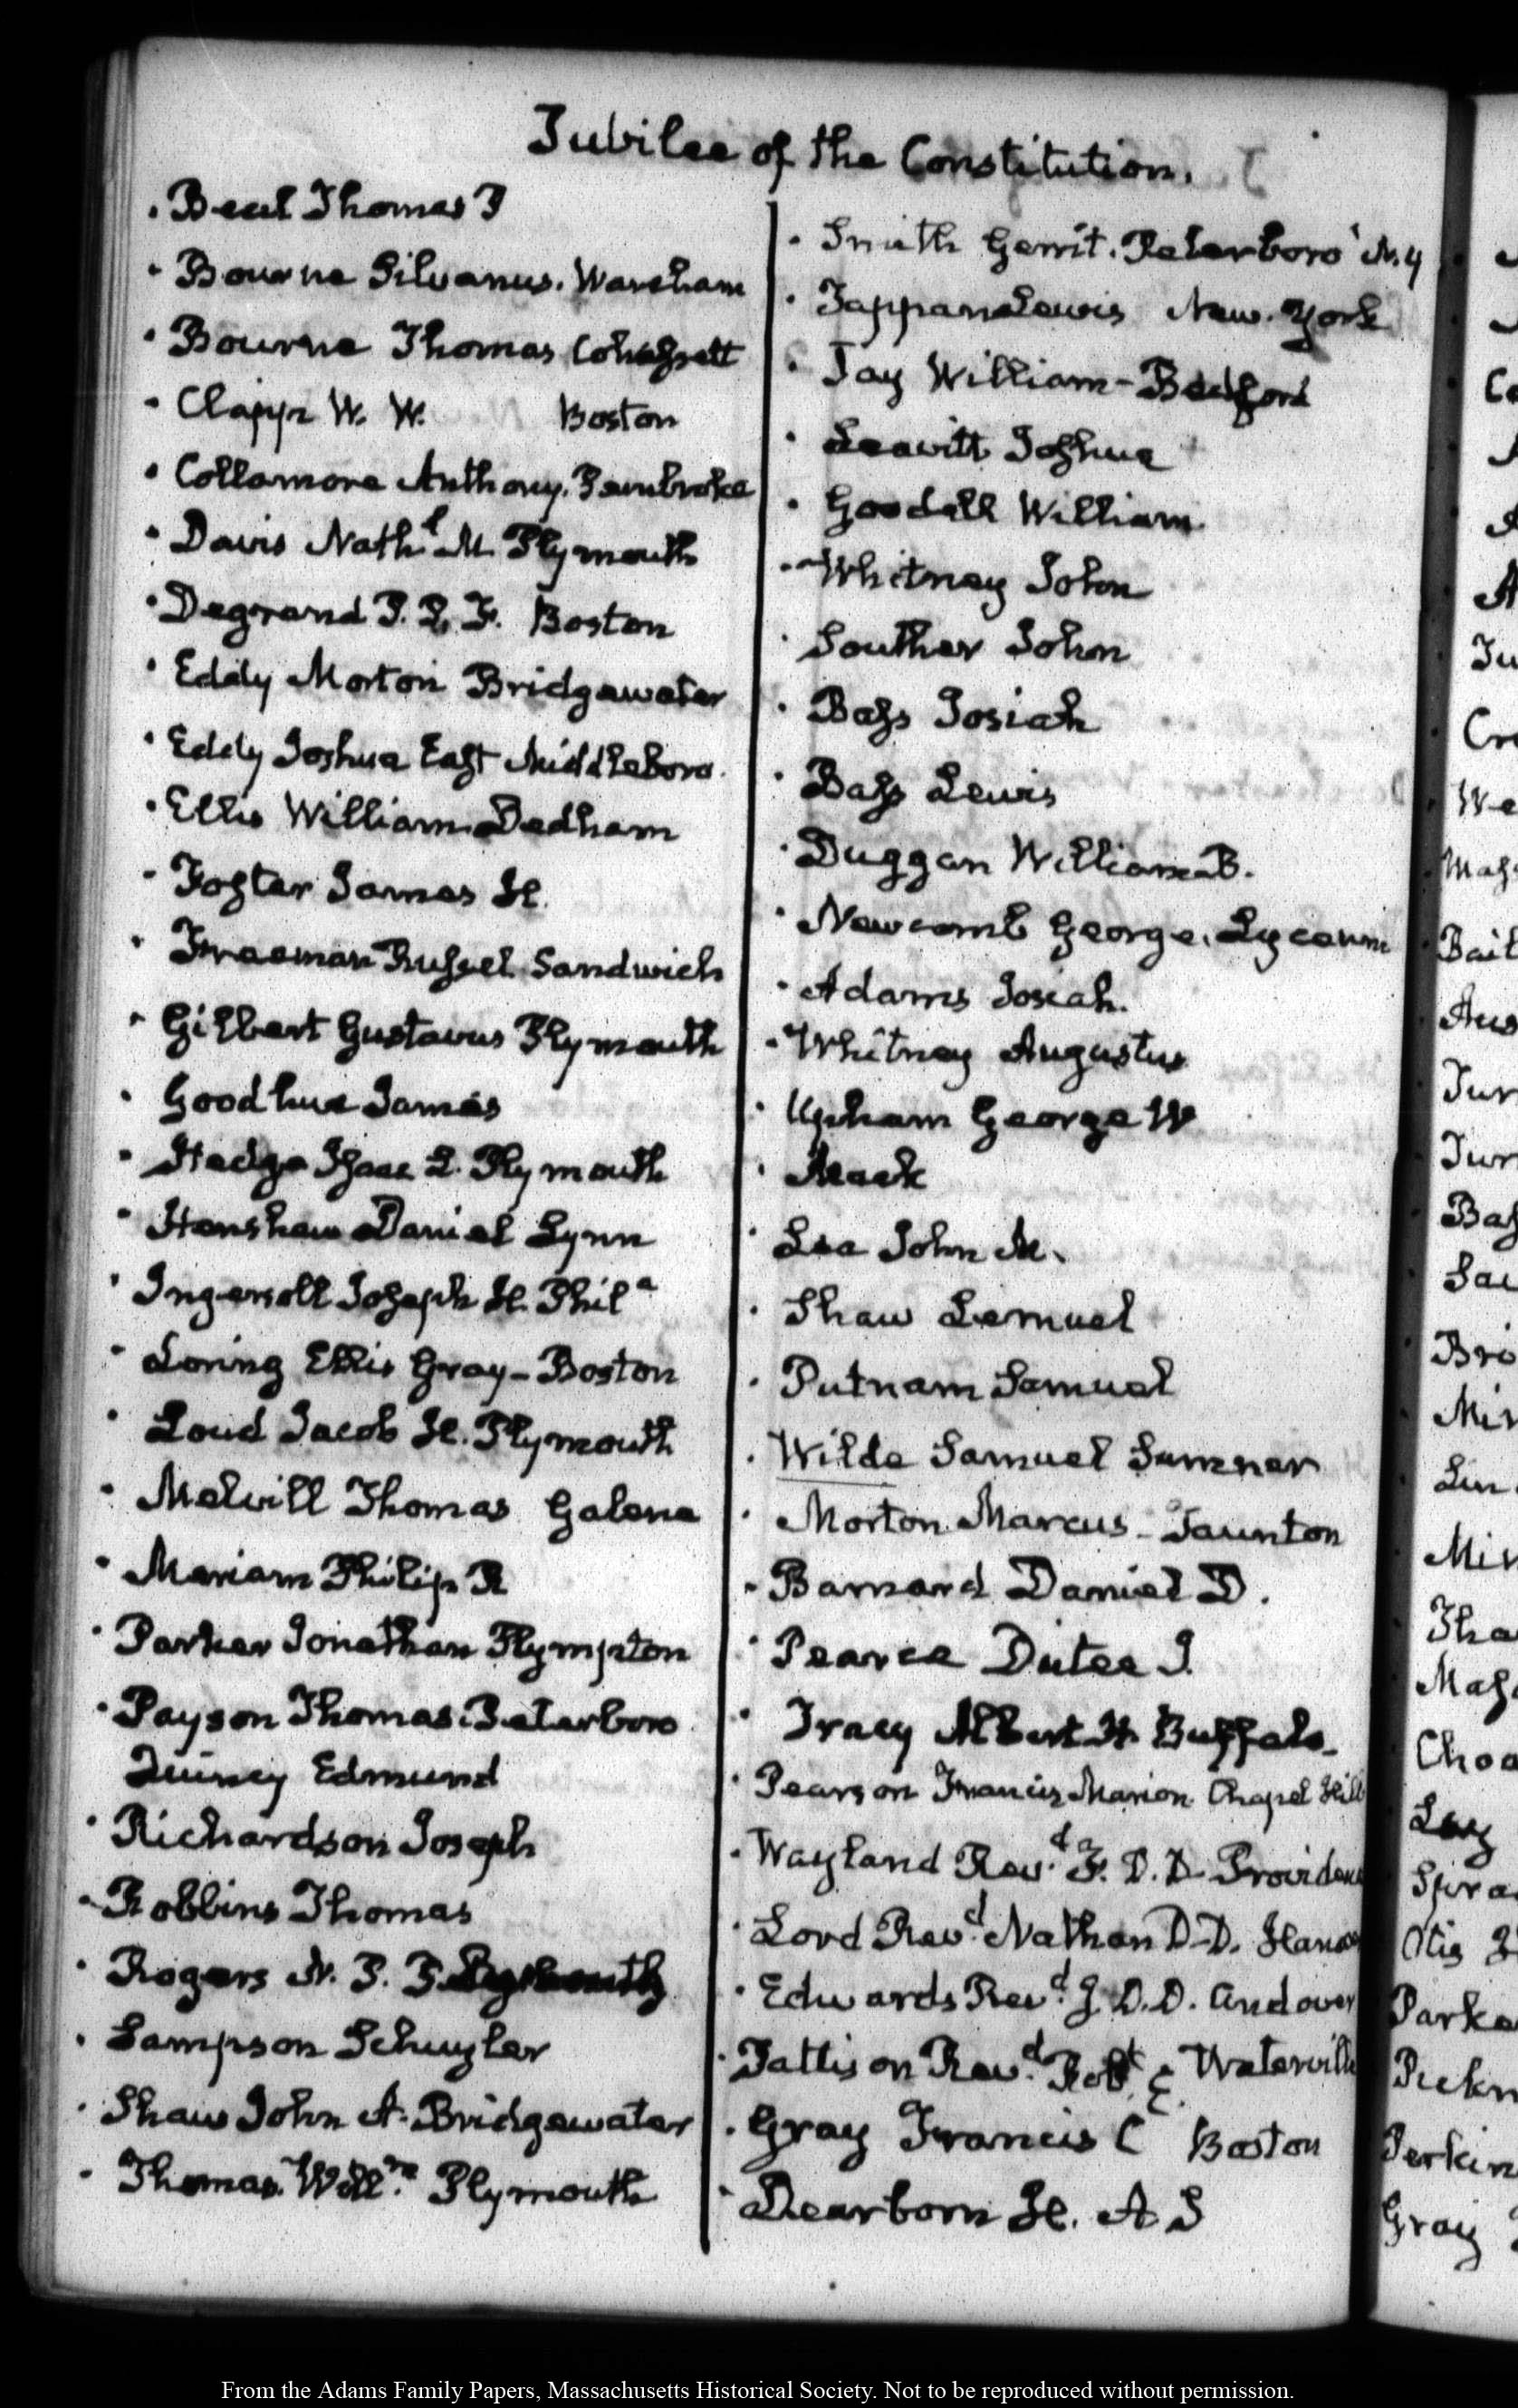 Jubilee of the Constitution.
Beal Thomas P
Bourne Silvanus. Wareham
Bourne Thomas Cohassett
Clapp W. W. Boston
Collamore Anthony. Pembroke
Davis Nathl. M. Plymouth
Degrand P. P. F. Boston
Eddy Morton Bridgewater
Eddy Joshua East Middleboro.
Ellis William. Dedham
Foster James H.
Freeman Russel. Sandwich
Gilbert Gustavus Plymouth
Goodhue James
Hedge Isaac L. Plymouth
Henshaw Daniel Lynn
Ingersoll Joseph H. Phila
Loring Ellis Gray - Boston
Loud Jacob H. Plymouth
Melvill Thomas Galena
Mariam Philip R
Parker Jonathan Plympton
Payson Thomas. Peterboro
Quincy Edmund
Richardson Joseph
Robbins Thomas
Rogers N. P. Plymouth
Sampson Schuyler
Shaw John A. Bridgewater
Thomas Willm. Plymouth
Smith Gerrit. Peterboro' N.Y
Tappan Lewis New-York
Jay William - Bedford
Leavitt Joshua
Goodell William.
Whitney John
Souther John
Bass Josiah
Bass Lewis
Duggan William B.
Newcomb George. Lyceum
Adams Josiah.
Whitney Augustus
Upham George W
Lea John M.
Shaw Lemuel
Putnam Samuel
Wilde Samuel Sumner
Morton Marcus - Taunton
Barnard Daniel D.
Pearce Dutee J.
Tracy Albert H. Buffalo
Pearson Francis Marion Chapel Hill
Wayland Revd. F. D. D. Providence
Lord Revd. Nathan D.D. Hanover
Edwards Revd. J. D.D. Andover
Pattison Revd. Robt. E. Waterville
Gray Francis C Boston
Dearborn H. A S
From the Adams Family Papers, Massachusetts Historical Society. Not to be reproduced without permission.